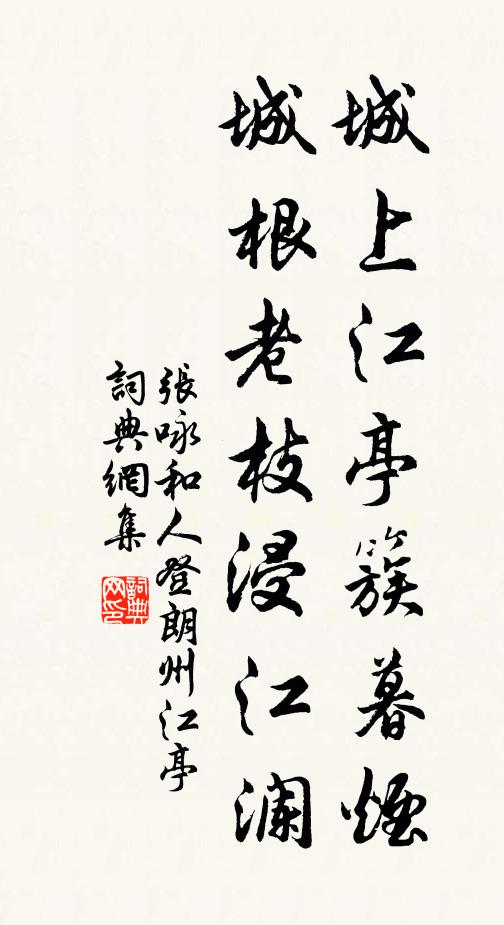 城上江亭簇暮煙
城根老枝浸江瀾
張咏和人登朗州江亭
詞典網集
詞典网印